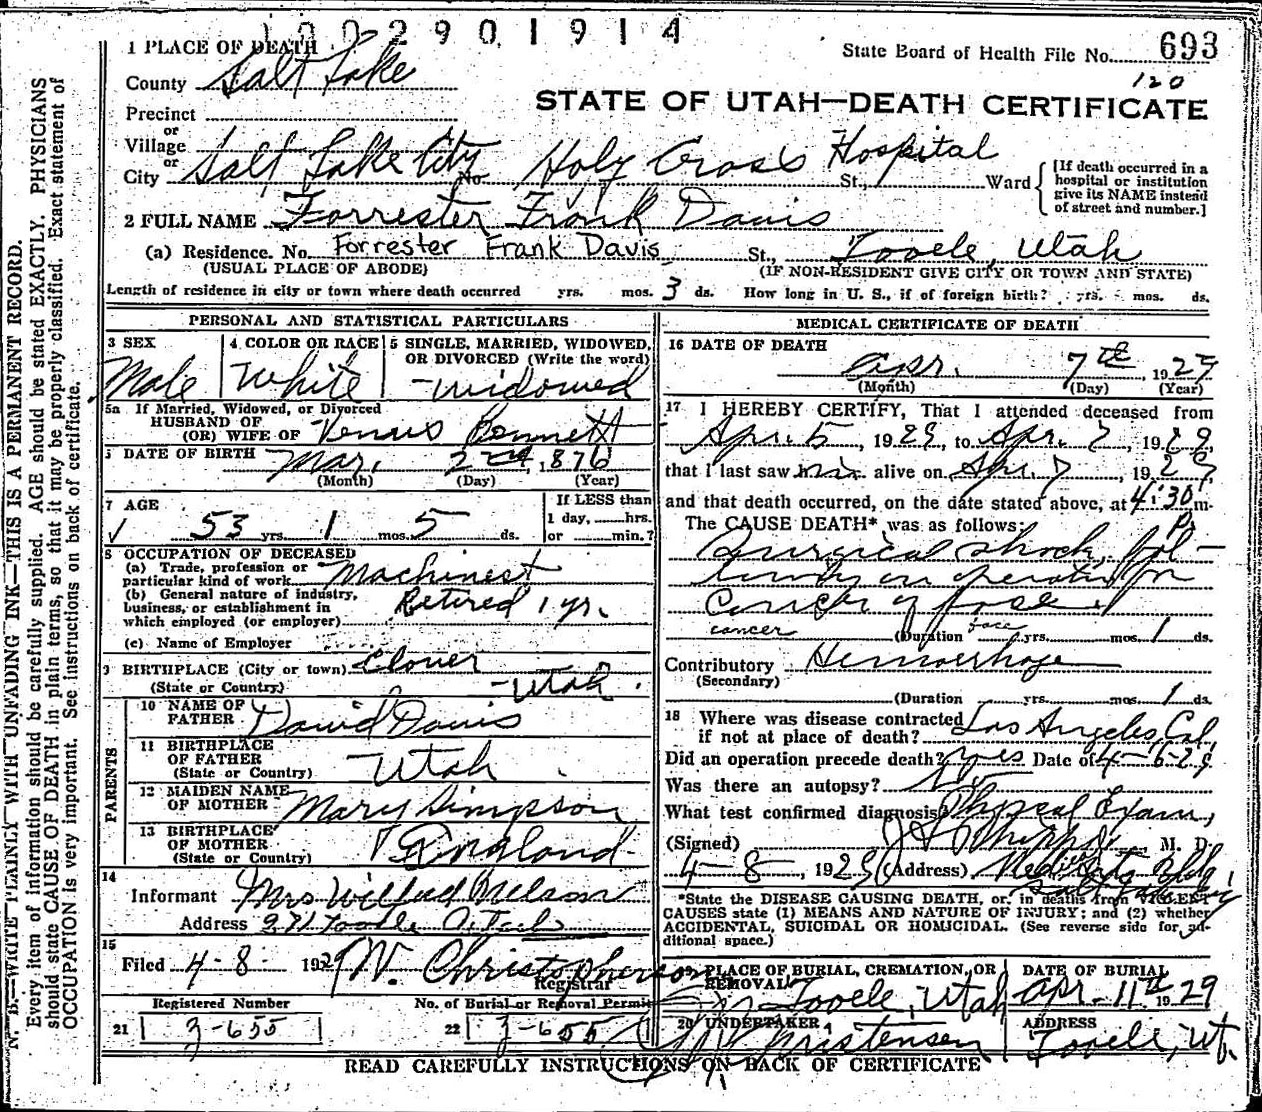 1002901914
1 PLACE OF DEATH
State Board of Health File No. 693
County Salt Lake
120
STATE OF UTAH—DEATH CERTIFICATE
Precinct
or
Village
or
City Salt Lake City No. Holy Cross Hospital St., Ward
[If death occurred in a hospital or institution give its NAME instead of street and number.]
2 FULL NAME Forrester Frank Davis
(a) Residence. No. Forrester Frank Davis St., Tooele, Utah
(USUAL PLACE OF ABODE) (IF NON-RESIDENT GIVE CITY OR TOWN AND STATE)
Length of residence in city or town where death occurred yrs. mos. 3 ds. How long in U. S., if of foreign birth? yrs. mos. ds.
N. B.—WRITE PLAINLY WITH UNFADING INK—THIS IS A PERMANENT RECORD.
Every item of information should be carefully supplied. AGE should be stated EXACTLY. PHYSICIANS
should state CAUSE OF DEATH in plain terms, so that it may be properly classified. Exact statement of
OCCUPATION is very important. See instructions on back of certificate.
PERSONAL AND STATISTICAL PARTICULARS
3 SEX
Male
4 COLOR OR RACE
White
5 SINGLE, MARRIED, WIDOWED,
OR DIVORCED (Write the word)
widowed
5a If Married, Widowed, or Divorced
HUSBAND OF
(OR) WIFE OF Venus Bennett
DATE OF BIRTH Mar. 2nd, 1876
(Month) (Day) (Year)
7 AGE
53 yrs. 1 mos. 5 ds.
If LESS than
1 day, hrs.
or min.?
8 OCCUPATION OF DECEASED
(a) Trade, profession or
particular kind of work Machinest
(b) General nature of industry,
business, or establishment in
which employed (or employer) Retired 1 yr.
(c) Name of Employer
9 BIRTHPLACE (City or town) Clover
(State or Country) -Utah.
PARENTS
10 NAME OF
FATHER David Davis
11 BIRTHPLACE
OF FATHER
(State or Country) Utah
12 MAIDEN NAME
OF MOTHER Mary Simpson
13 BIRTHPLACE
OF MOTHER
(State or Country) England
14
Informant Mrs Willard Nelson
Address Tooele Utah
15
Filed 4-8- 1929 W Christopherson
Registrar
Registered Number
21 3-655
No. of Burial or Removal Permit
22 3-655
MEDICAL CERTIFICATE OF DEATH
16 DATE OF DEATH
Apr. 7th, 1929
(Month) (Day) (Year)
17 I HEREBY CERTIFY, That I attended deceased from
Apr. 5, 1929, to Apr. 7, 1929,
that I last saw him alive on Apr. 7, 1929,
and that death occurred, on the date stated above, at 4:30 m.
P.
The CAUSE DEATH* was as follows:
Surgical shock, fol-
lowing an operation for
Cancer of face
cancer face
(Duration yrs. mos. 1 ds.
Contributory Hemorrhage
(Secondary)
(Duration yrs. mos. 1 ds.
18 Where was disease contracted
if not at place of death? Los Angeles, Cal.
Did an operation precede death? yes Date of 4-6-29
Was there an autopsy? No
What test confirmed diagnosis? Physical Exam,
(Signed) M. D.
4-8, 1929 (Address) Medical Arts Bldg
Salt Lake City
*State the DISEASE CAUSING DEATH, or, in deaths from VIOLENT
CAUSES state (1) MEANS AND NATURE OF INJURY; and (2) whether
ACCIDENTAL, SUICIDAL OR HOMICIDAL. (See reverse side for ad-
ditional space.)
19 PLACE OF BURIAL, CREMATION, OR
REMOVAL
Tooele, Utah
DATE OF BURIAL
Apr-11th 1929
20 UNDERTAKER
Christensen
ADDRESS
Tooele, Ut.
READ CAREFULLY INSTRUCTIONS ON BACK OF CERTIFICATE